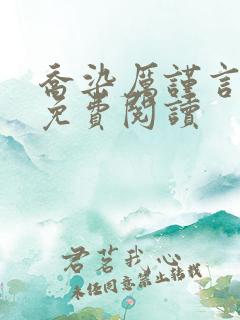 喬染厲謹言
免費閱讀
君茗我心
未任同意禁止转载